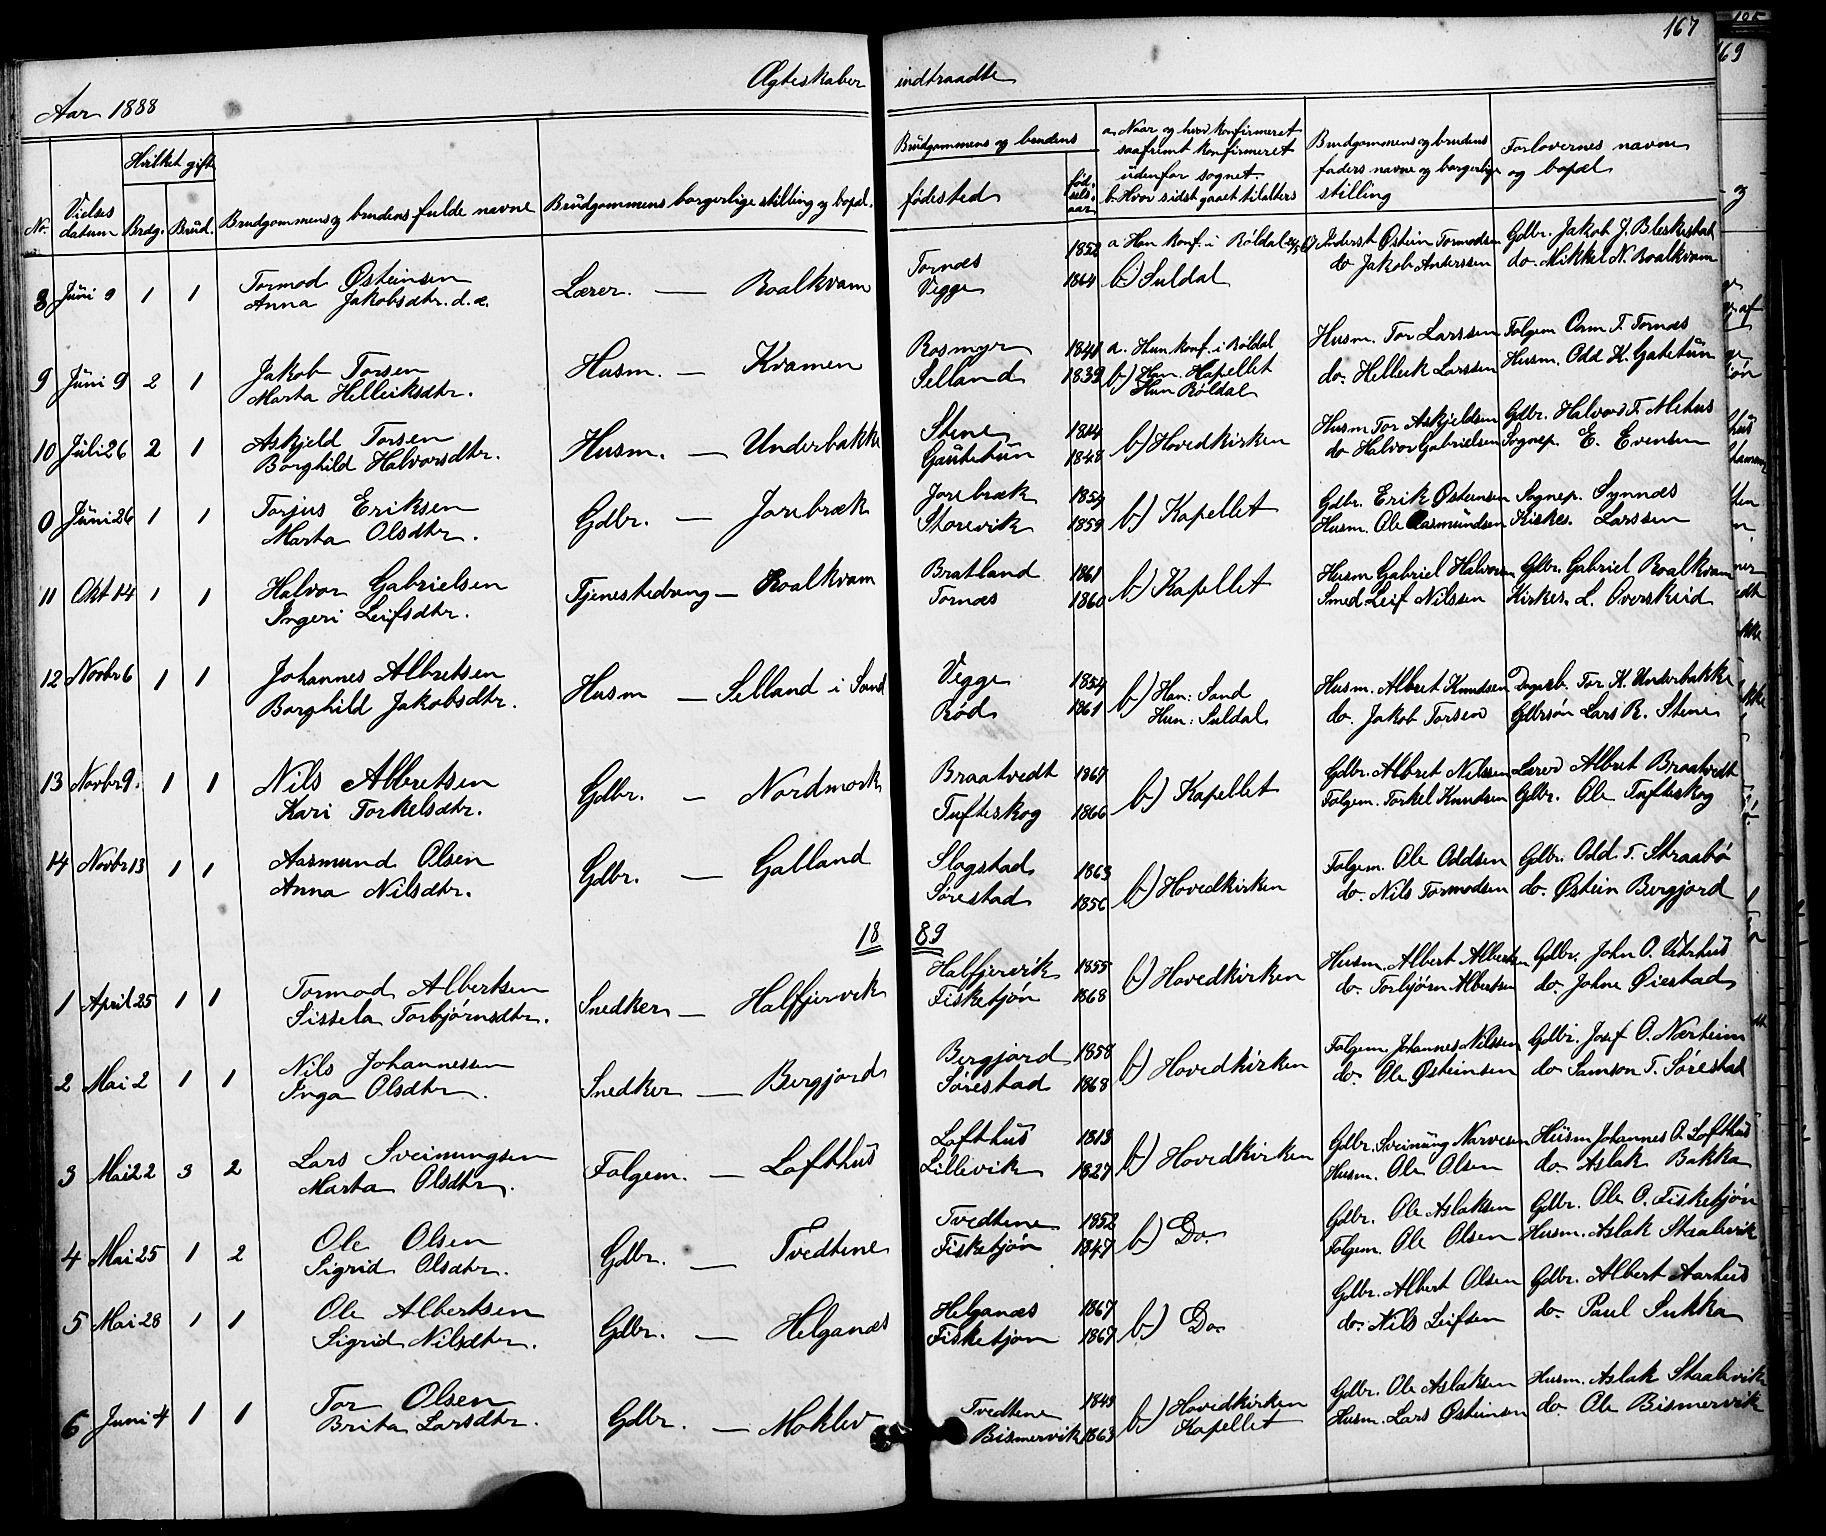 167
Ægteskaber indtraadte
Aar 1888
No. Vielses datum Hvilket gifte Brdg. Brud. Brudgommens og brudens fulde navne Brudgommens borgerlige stilling og bopæl. Brudgommens og brudens fødested fødselsaar a. Naar og hvor konfirmeret saafremt konfirmeret udenfor sognet. b. Hvor sidst gaaet tilalters Brudgommens og brudens faders navne og borgerlige stilling Forlovernes navne og bopæl
8 Juni 9 1 1 Tormod Østeinsen Lærer. — Roalkvam Tornæs 1852 a Han konf. i Røldal Inderst Østein Tormodsen Gdbr. Jakob J. Bleskestad
Anna Jakobsdtr. d.æ. Vegge 1864 b) Suldal do Jakob Anderssen do. Mikkel N. Roalkvam
9 Juni 9 2 1 Jakob Torsen Husm. — Kvamen Rosmyr 1841 a. Hun konf. i Røldal Husm. Tor Larssen Folgem Orm T. Tornæs
Marta Helleiksdtr. Selland 1839 b) Han. Kapellet do. Helleik Larssen Husm. Odd K. Gatetun
Hun Røldal
10 Juli 26 2 1 Askjeld Torsen Husm. — Underbakke Stene 1844 b) Hovedkirken Husm Tor Askjeldsen Gdbr. Halvor T. Mehus
Borghild Halvorsdtr. Gautetun 1848 do Halvor Gabrielsen Sognep. E. Evensen
0 Juni 26 1 1 Torjus Eriksen Gdbr. — Jorebræk Jorebræk 1854 b) Kapellet Gdbr. Erik Østeinsen Sognep. Synnæs
Marta Olsdtr. Storevik 1859 Husm. Ole Rasmundsen Kirkes. Larssen
11 Okt 14 1 1 Halvor Gabrielsen Tjenestedreng — Roalkvam Bratland 1861 b) Kapellet Husm Gabriel Halvorsen Gdbr. Gabriel Roalkvam
Ingeri Leifsdtr. Tornæs 1860 Smed Leif Nilssen Kirkes. L. Overskeid
12 Novbr 6 1 1 Johannes Albretsen Husm — Selland i Sand Vegge 1854 b) Han: Sand Husm. Albret Knudsen Dagarb. Tor K. Underbakke
Borghild Jakobsdtr. Rød 1861 Hun: Suldal do. Jakob Torsen Gdbrsøn Lars R. Stene
13 Novbr 9. 1 1 Nils Albretsen Gdbr. — Nordmork Braatvedt 1867 b) Kapellet Gdbr. Albret Nilssen Lærer Albret Braatvedt
Kari Torkelsdtr. Tufteskog 1866 Folgem. Torkel Knudsen Gdbr. Ole Tufteskog
14 Novbr 13 1 1 Aasmund Olsen Gdbr. — Galland Slagstad 1863 b) Hovedkirken Folgem. Ole Oddsen Gdbr. Odd T. Straabø
Anna Nilsdtr. Sørestad 1856 do. Nils Tormodsen do. Østein Bergjord
1889
1 April 25 1 1 Tormod Albertsen Snedker — Halfjervik Halfjervik 1855 b) Hovedkirken Husm. Albert Albertsen Gdbr. John O. Veshus
Sissela Torbjørnsdtr. Fisketjøn 1868 do. Torbjørn Albertsen do. Johne Øiestad
2 Mai 2 1 1 Nils Johannessen Snedker — Bergjord Bergjord 1858 b) Hovedkirken Folgem. Johannes Nilssen Gdbr. Josef O. Nærheim
Inga Olsdtr. Sørestad 1868 do. Ole Østeinsen do Samson T. Sørestad
3 Mai 22 3 2 Lars Sveinungsen Folgem. — Lofthus Lofthus 1813 b) Hovedkirken Gdbr. Sveinung Narvesen Husm Johannes O. Lofthus
Marta Olsdtr. Lillevik 1827 Husm. Ole Olsen do. Aslak Bakka
4 Mai 25 1 2 Ole Olsen Gdbr. — Tvedtene Tvedtene 1852 b) Do. Gdbr. Ole Aslaksen Gdbr. Ole O. Fisketjøn
Sigrid Olsdtr. Fisketjøn 1847 Folgem. Ole Olsen Husm. Aslak Staalevik
5 Mai 28 1 1 Ole Albertsen Gdbr. — Helganæs Helganæs 1867 b) Do. Gdbr. Albert Olsen Gdbr. Albert Aarhus
Sigrid Nilsdtr. Fisketjøn 1867 do. Nils Leifsen do. Paul Sukka
6 Juni 4 1 1 Tor Olsen Gdbr. — Moklev Tvedtene 1849 b) Hovedkirken Gdbr. Ole Aslaksen Husm. Aslak Staalevik
Brita Larsdtr. Bismervik 1863 Kapellet Husm. Lars Østeinsen do. Ole Bismervik